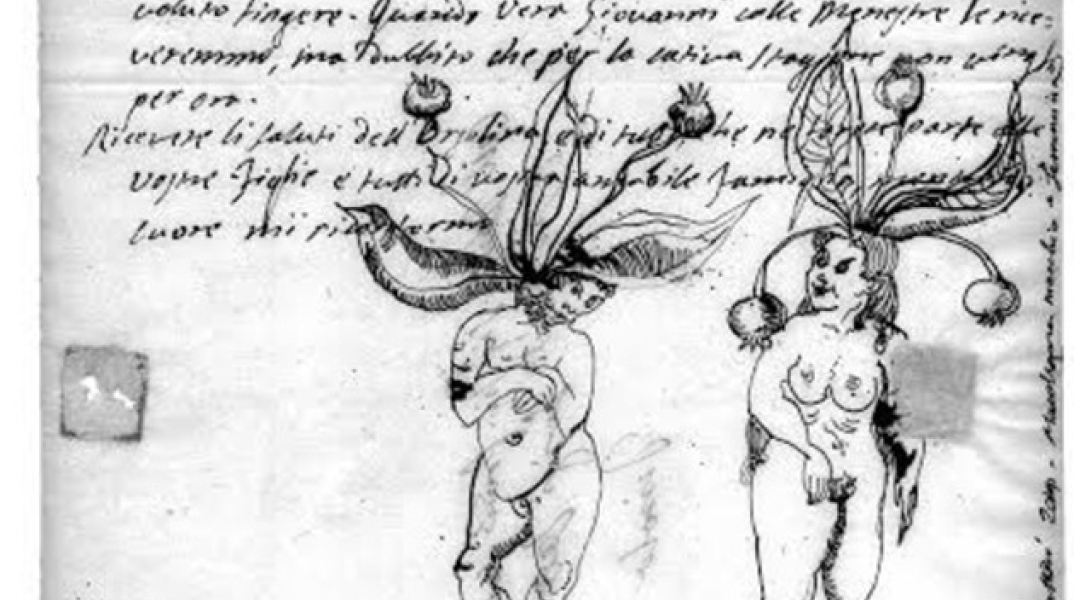 voluto fingere. Quando Verà Giovanni colle Menestre le rice:
veremmo, ma dubbito che per la cativa Staggione non
per ora.
Ricevete li saluti dell Orsolina e di tutti, che ne farete parte alle
vostre Figlie e tutti di vostra amabile Famiglia, mentre di
cuore mi
Mandragora maschio e Femmina